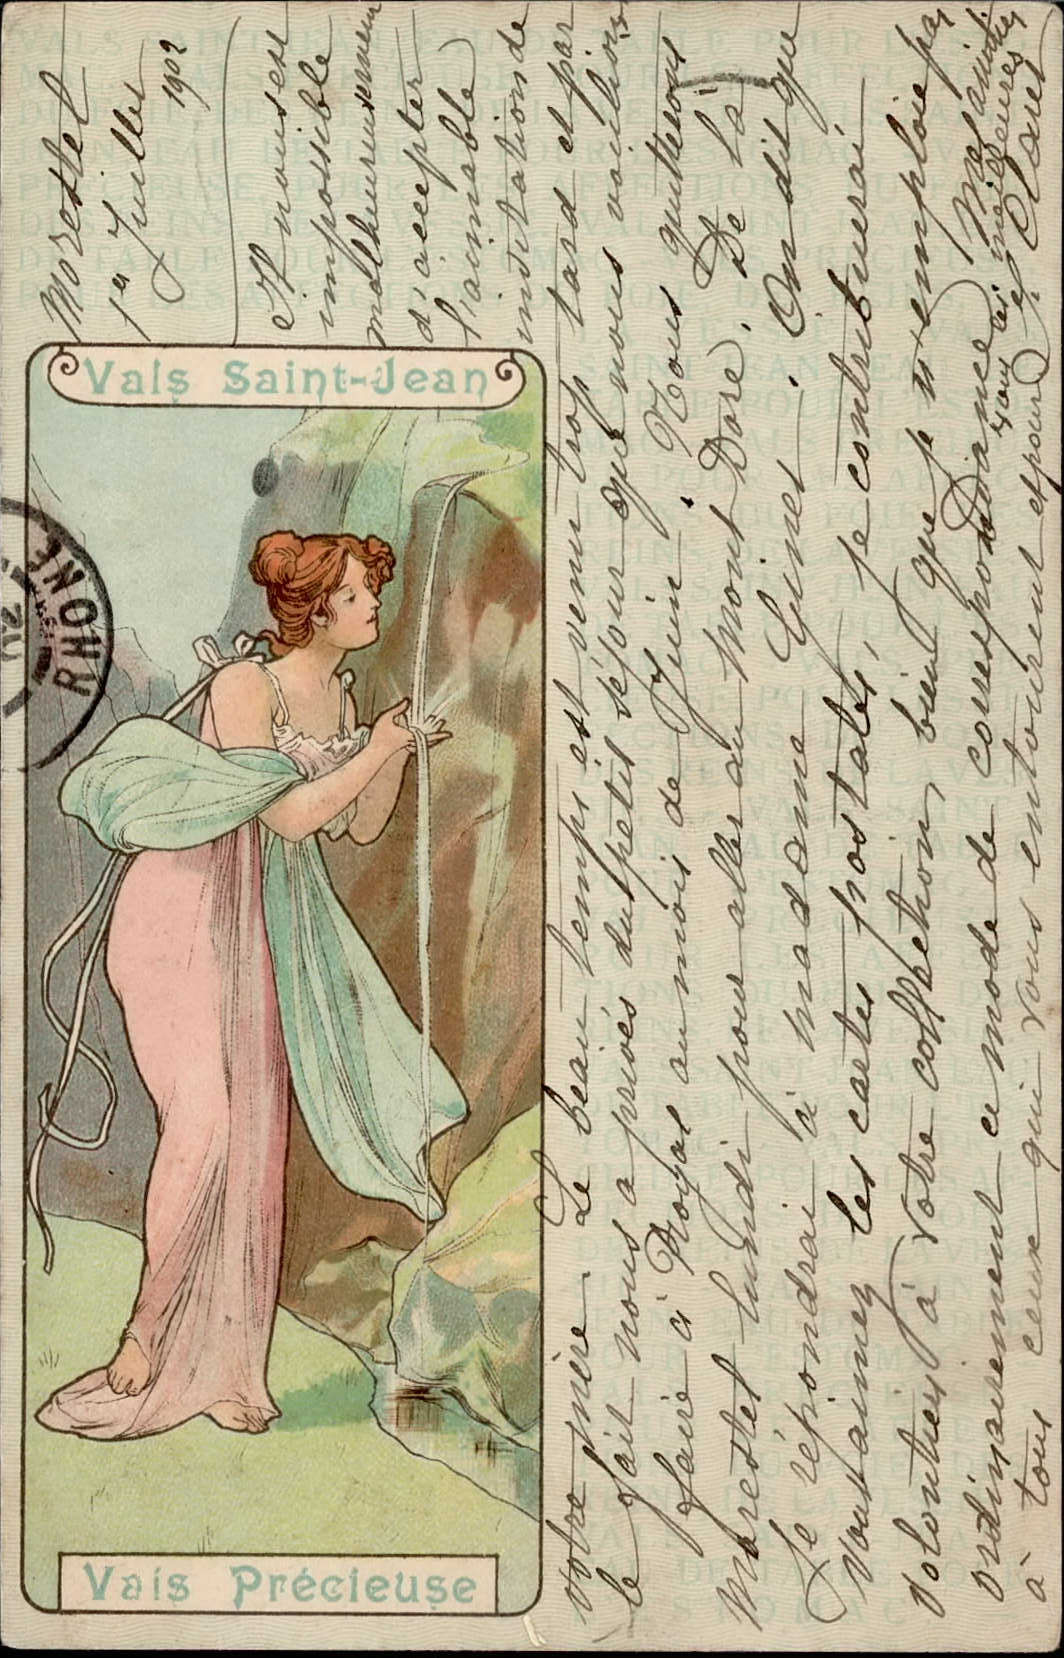 Morestel
1er Juillet
1902
Il nous est
impossible
malheureusement
d'accepter
l'aimable
invitation de
votre mère. Le beau temps est venu trop tard et par
le fait nous a privés du petit séjour que nous voulions
faire à Royat au mois de Juin. Nous quitterons
Morestel lundi pour aller au Mont Dore. De là
je répondrai à madame Ginet. On dit que
vous aimez les cartes postales, je contribuerai
volontiers à votre collection, bien que je n'emploie pas
ordinairement ce mode de correspondance. Mes amitiés
à tous ceux qui vous entourent et pour
vous les meilleures
Vals Saint-Jean
Vals Précieuse
RHONE
02